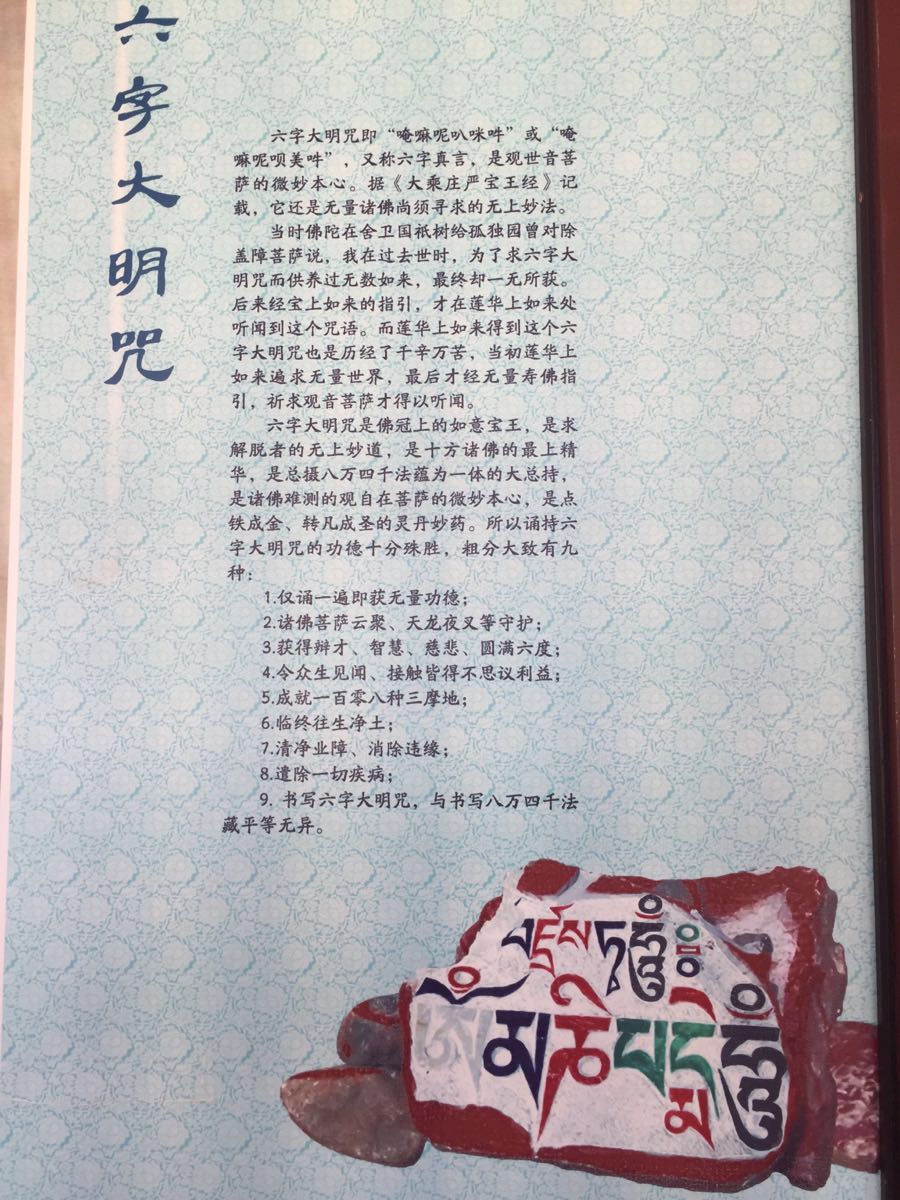 六字大明咒
六字大明咒即“唵嘛呢叭咪吽”或“唵
嘛呢呗美吽”，又称六字真言，是观世音菩
萨的微妙本心。据《大乘庄严宝王经》记
载，它还是无量诸佛尚须寻求的无上妙法。
当时佛陀在舍卫国祇树给孤独园曾对除
盖障菩萨说，我在过去世时，为了求六字大
明咒而供养过无数如来，最终却一无所获。
后来经宝上如来的指引，才在莲华上如来处
听闻到这个咒语。而莲华上如来得到这个六
字大明咒也是历经了千辛万苦，当初莲华上
如来遍求无量世界，最后才经无量寿佛指
引，祈求观音菩萨才得以听闻。
六字大明咒是佛冠上的如意宝王，是求
解脱者的无上妙道，是十方诸佛的最上精
华，是总摄八万四千法蕴为一体的大总持，
是诸佛难测的观自在菩萨的微妙本心，是点
铁成金、转凡成圣的灵丹妙药。所以诵持六
字大明咒的功德十分殊胜，粗分大致有九
种：
1.仅诵一遍即获无量功德；
2.诸佛菩萨云聚、天龙夜叉等守护；
3.获得辩才、智慧、慈悲、圆满六度；
4.令众生见闻、接触皆得不思议利益；
5.成就一百零八种三摩地；
6.临终往生净土；
7.清净业障、消除违缘；
8.遣除一切疾病；
9. 书写六字大明咒，与书写八万四千法
藏平等无异。